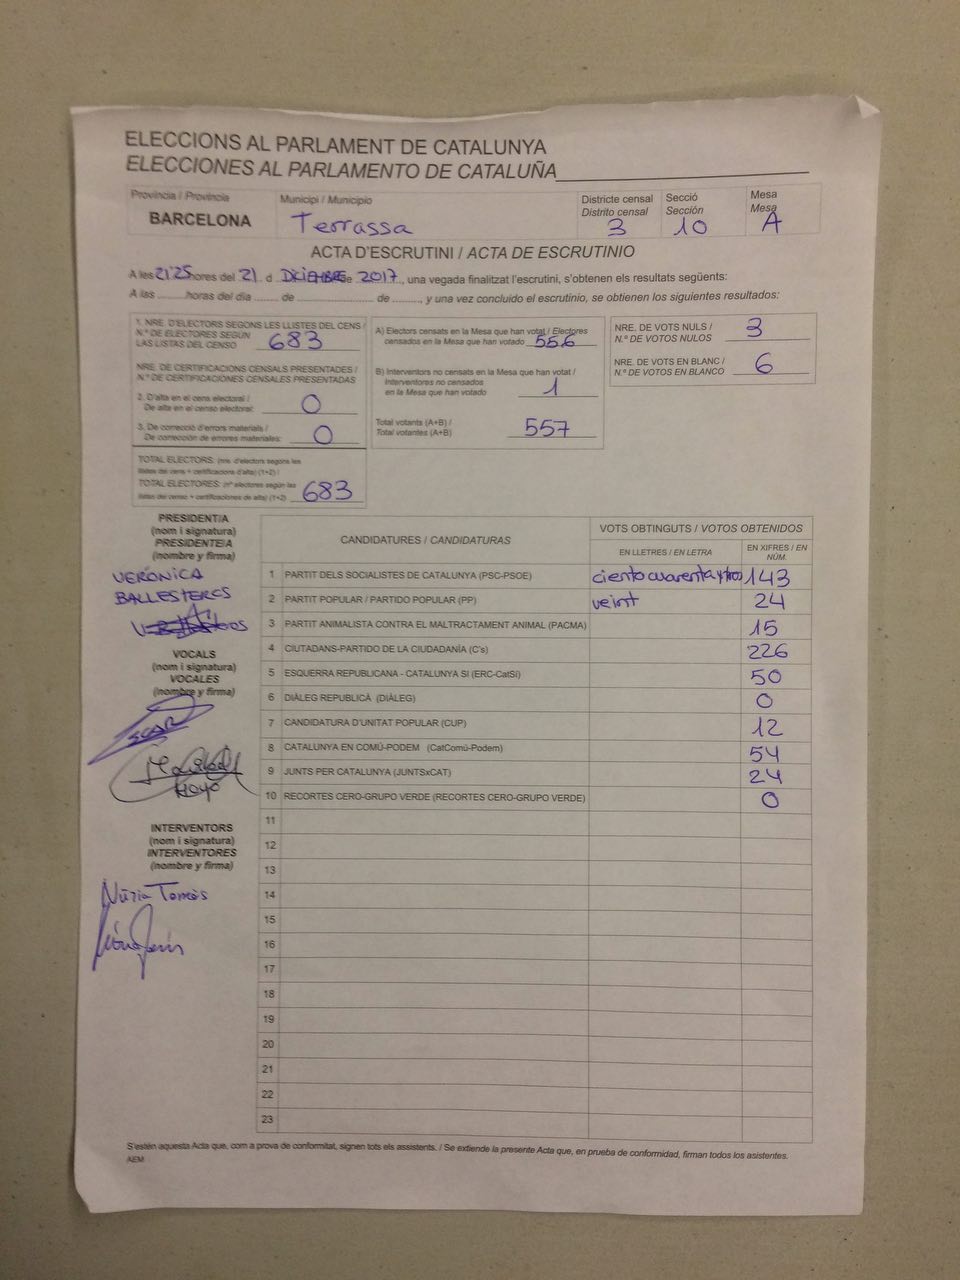 ELECCIONS AL PARLAMENT DE CATALUNYA
ELECCIONES AL PARLAMENTO DE CATALUÑA
Província / Provincia
BARCELONA
Municipi / Municipio
Terrassa
Districte censal
Distrito censal
3
Secció
Sección
10
Mesa
Mesa
A
ACTA D'ESCRUTINI / ACTA DE ESCRUTINIO
A les 21'25 hores del 21 d DICIEMBRE de 2017, una vegada finalitzat l'escrutini, s'obtenen els resultats següents:
A las ........ horas del día ........ de ........ de ........, y una vez concluido el escrutinio, se obtienen los siguientes resultados:
1. NRE. D'ELECTORS SEGONS LES LLISTES DEL CENS /
N.º DE ELECTORES SEGÚN
LAS LISTAS DEL CENSO 683
NRE. DE CERTIFICACIONS CENSALS PRESENTADES /
N.º DE CERTIFICACIONES CENSALES PRESENTADAS
2. D'alta en el cens electoral /
De alta en el censo electoral: 0
3. De correcció d'errors materials /
De corrección de errores materiales: 0
TOTAL ELECTORS: (nre. d'electors segons les
llistes del cens + certificacions d'alta) (1+2) /
TOTAL ELECTORES: (nº electores según las
listas del censo + certificaciones de alta) (1+2) 683
A) Electors censats en la Mesa que han votat / Electores
censados en la Mesa que han votado 556
B) Interventors no censats en la Mesa que han votat /
Interventores no censados
en la Mesa que han votado 1
Total votants (A+B) /
Total votantes (A+B) 557
NRE. DE VOTS NULS /
N.º DE VOTOS NULOS 3
NRE. DE VOTS EN BLANC /
N.º DE VOTOS EN BLANCO 6
PRESIDENT/A
(nom i signatura)
PRESIDENTE/A
(nombre y firma)
VERÓNICA
BALLESTEROS
VOCALS
(nom i signatura)
VOCALES
(nombre y firma)
HOYO
INTERVENTORS
(nom i signatura)
INTERVENTORES
(nombre y firma)
Núria Tomàs
CANDIDATURES / CANDIDATURAS
VOTS OBTINGUTS / VOTOS OBTENIDOS
EN LLETRES / EN LETRA
EN XIFRES / EN NÚM.
1 PARTIT DELS SOCIALISTES DE CATALUNYA (PSC-PSOE) ciento cuarenta y tres 143
2 PARTIT POPULAR / PARTIDO POPULAR (PP) veint 24
3 PARTIT ANIMALISTA CONTRA EL MALTRACTAMENT ANIMAL (PACMA) 15
4 CIUTADANS-PARTIDO DE LA CIUDADANÍA (C's) 226
5 ESQUERRA REPUBLICANA - CATALUNYA SI (ERC-CatSí) 50
6 DIÀLEG REPUBLICÀ (DIÀLEG) 0
7 CANDIDATURA D'UNITAT POPULAR (CUP) 12
8 CATALUNYA EN COMÚ-PODEM (CatComú-Podem) 54
9 JUNTS PER CATALUNYA (JUNTSxCAT) 24
10 RECORTES CERO-GRUPO VERDE (RECORTES CERO-GRUPO VERDE) 0
11
12
13
14
15
16
17
18
19
20
21
22
23
S'estén aquesta Acta que, com a prova de conformitat, signen tots els assistents. / Se extiende la presente Acta que, en prueba de conformidad, firman todos los asistentes.
AEM